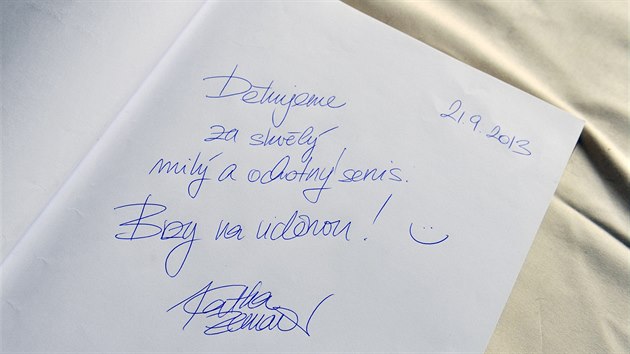 Děkujeme
21.9.2013
za skvělý,
milý a ochotný servis.
Brzy na viděnou! :)
Katka